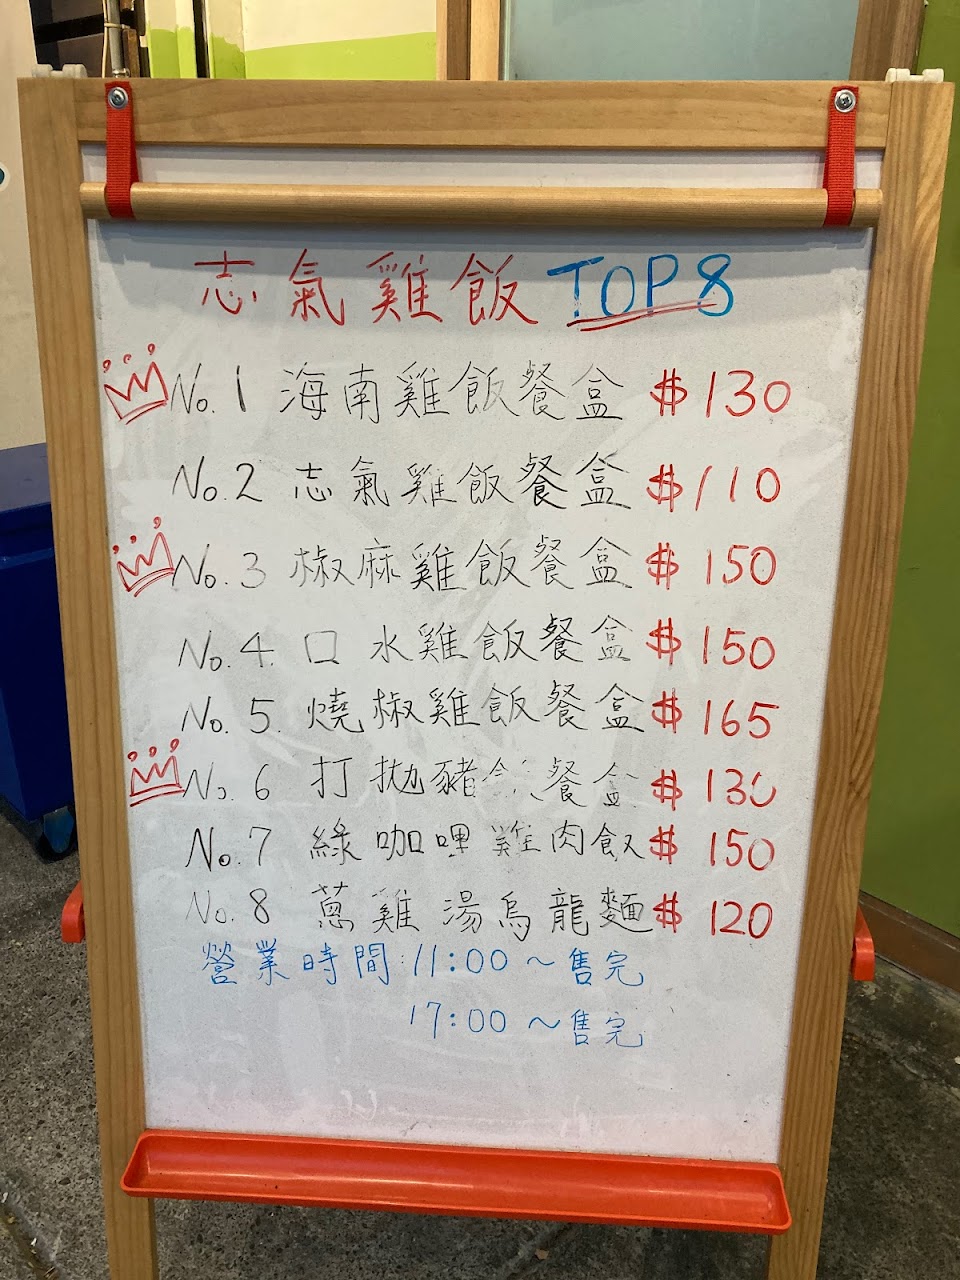 志氣雞飯TOP8
No.1 海南雞飯餐盒 $130
No.2 志氣雞飯餐盒 $110
No.3 椒麻雞飯餐盒 $150
No.4. 口水雞飯餐盒 $150
No.5. 燒椒雞飯餐盒 $165
No.6 打拋豬飯餐盒 $130
No.7 綠咖哩雞肉飯 $150
No.8 蔥雞湯烏龍麵 $120
營業時間:11:00~售完
17:00~售完